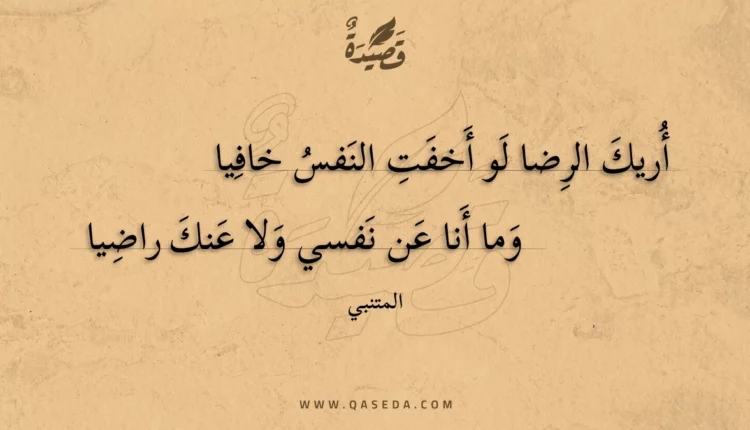 قَصِيْدَةٌ
أُريكَ الرِضا لَو أَخفَتِ النَفسُ خافِيا
وَما أَنا عَن نَفسي وَلا عَنكَ راضِيا
المتنبي
WWW.QASEDA.COM